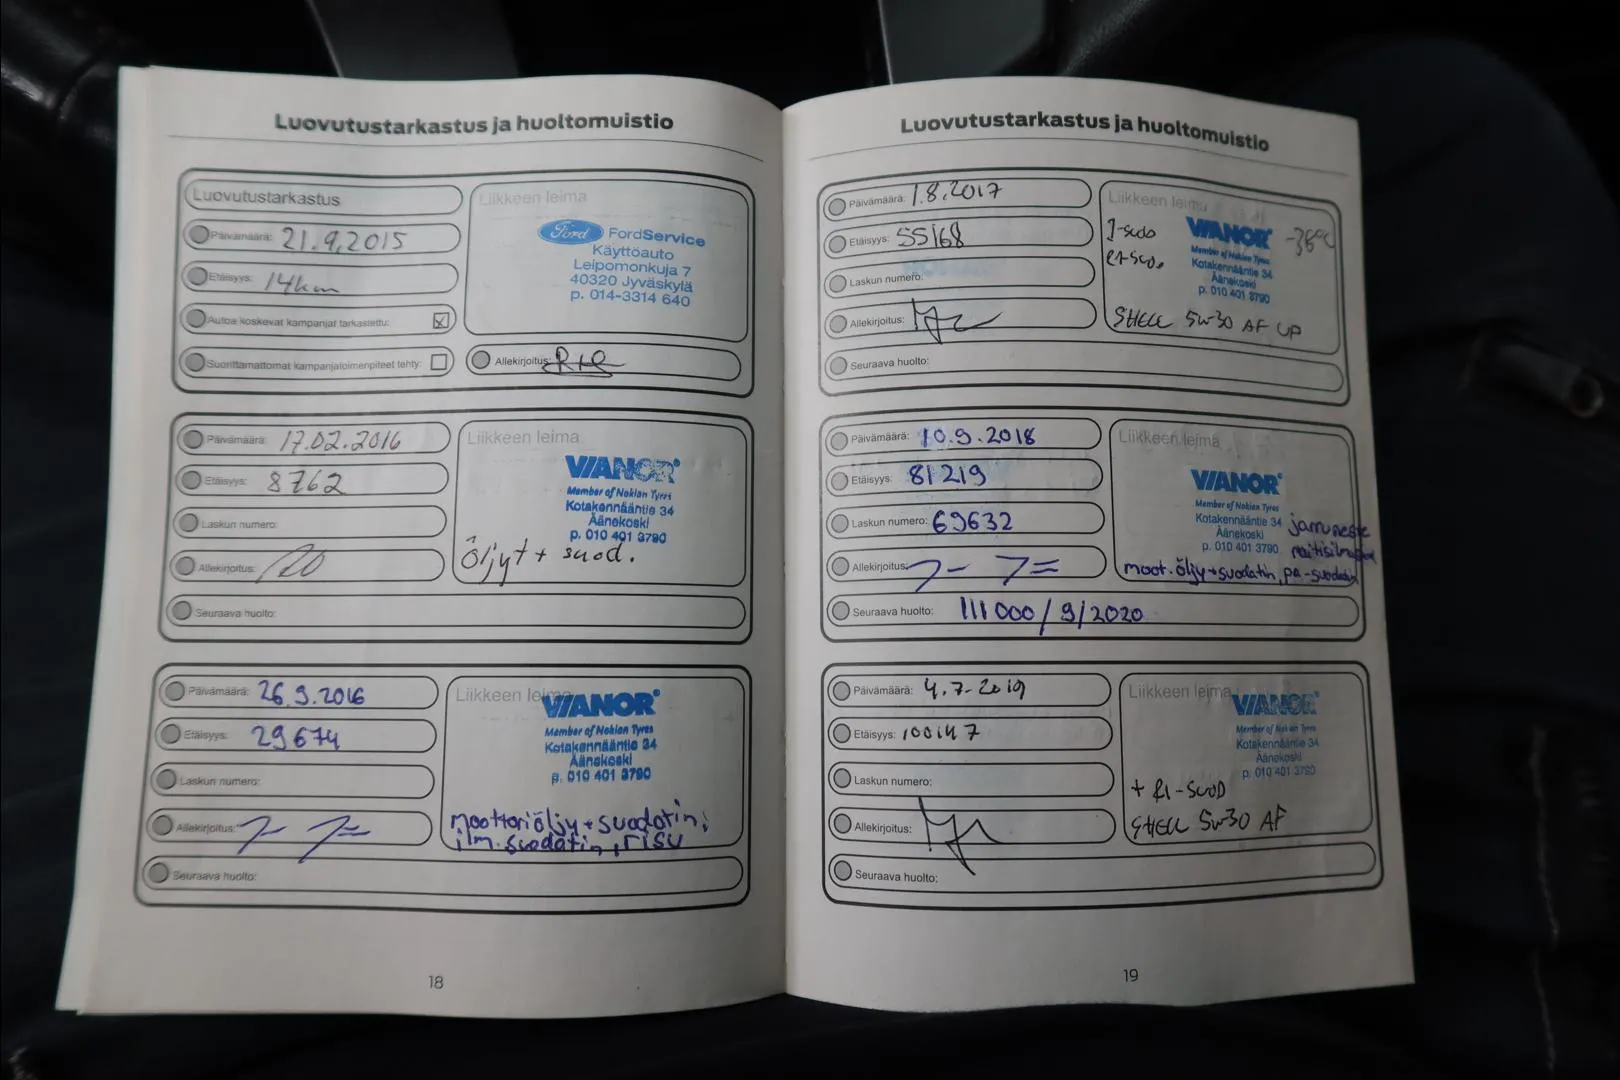 Luovutustarkastus ja huoltomuistio
Luovutustarkastus
Päivämäärä: 21.9.2015
Etäisyys: 14km
Autoa koskevat kampanjat tarkastettu:
Suorittamattomat kampanjatoimenpiteet tehty:
Liikkeen leima
Ford FordService
Käyttöauto
Leipomonkuja 7
40320 Jyväskylä
p. 014-3314 640
Allekirjoitus:
Päivämäärä: 17.02.2016
Etäisyys: 8762
Laskun numero:
Allekirjoitus:
Seuraava huolto:
Liikkeen leima
VIANOR
Member of Nokian Tyres
Kotakennääntie 34
Äänekoski
p. 010 401 3790
Öljyt + suod.
Päivämäärä: 26.9.2016
Etäisyys: 29674
Laskun numero:
Allekirjoitus:
Seuraava huolto:
Liikkeen leima
VIANOR
Member of Nokian Tyres
Kotakennääntie 34
Äänekoski
p. 010 401 3790
moottoriöljy + suodatin,
ilm. suodatin, risu
18
Luovutustarkastus ja huoltomuistio
Päivämäärä: 1.8.2017
Etäisyys: 55168
Laskun numero:
Allekirjoitus:
Seuraava huolto:
Liikkeen leima
VIANOR
-36°C
Member of Nokian Tyres
Kotakennääntie 34
Äänekoski
p. 010 401 3790
SHELL 5W30 AF UP
Päivämäärä: 10.9.2018
Etäisyys: 81219
Laskun numero: 69632
Allekirjoitus:
Seuraava huolto: 111000/9/2020
Liikkeen leima
VIANOR
Member of Nokian Tyres
Kotakennääntie 34
Äänekoski
p. 010 401 3790
jarruneste
moot.öljy+suodatin, pa-suodatin
Päivämäärä: 4.7-2019
Etäisyys: 100147
Laskun numero:
Allekirjoitus:
Seuraava huolto:
Liikkeen leima
VIANOR
Member of Nokian Tyres
Kotakennääntie 34
Äänekoski
p. 010 401 3790
+ RI-SUOD
SHELL 5W30 AF
19